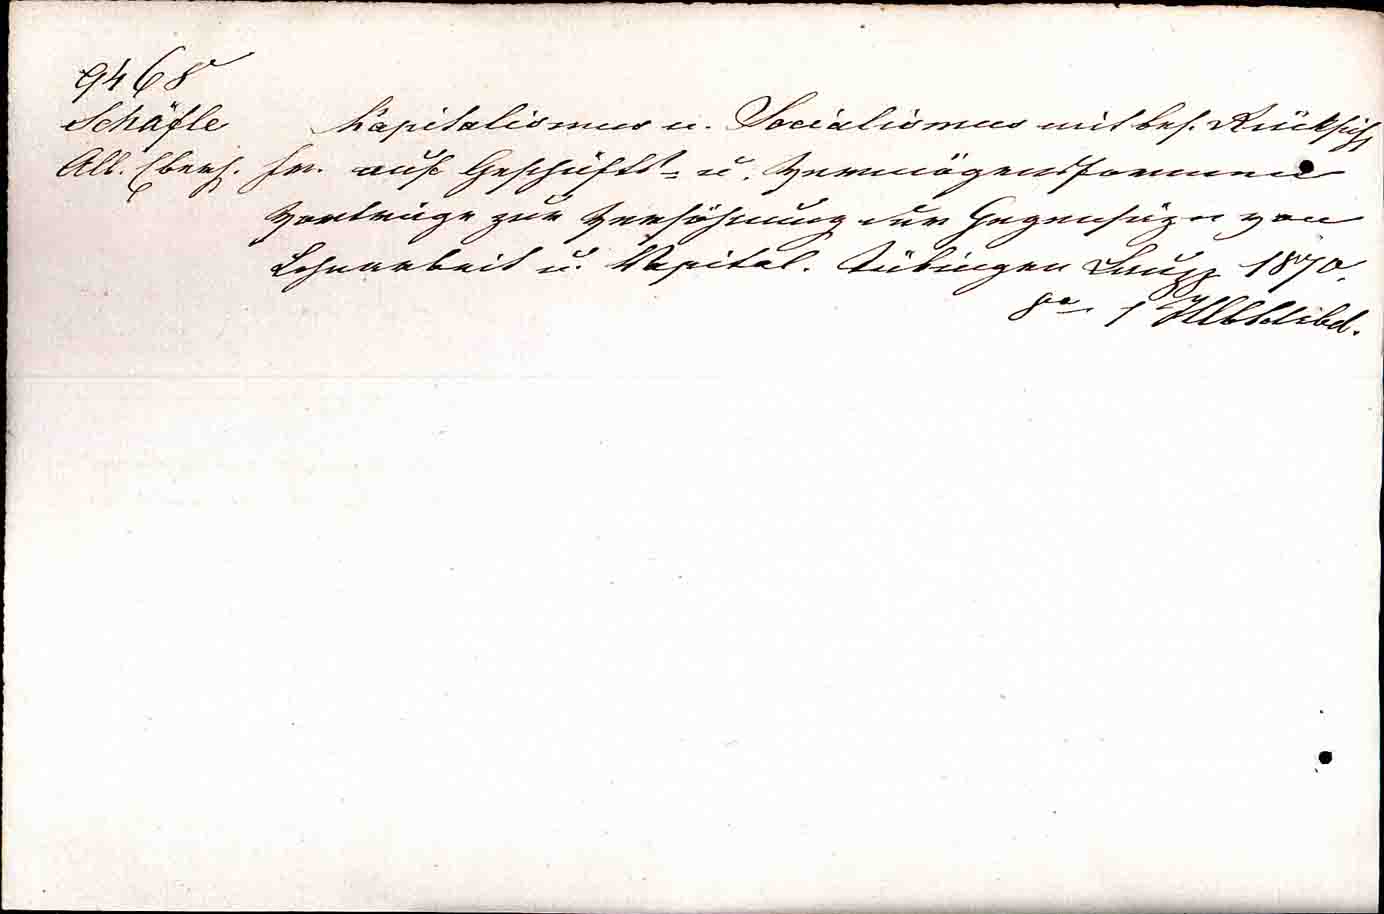 9468
Schäfle Kapitalismus u. Socialismus mit bes. Rücksicht
Alb. Eberh. Fr. auf Geschäfts- u. Vermögensformen
Vorträge zur Versöhnung der Gegensätze von
Lohnarbeit u. Kapital. Tübingen Laupp 1870.
8o 1 Hlbldrbd.